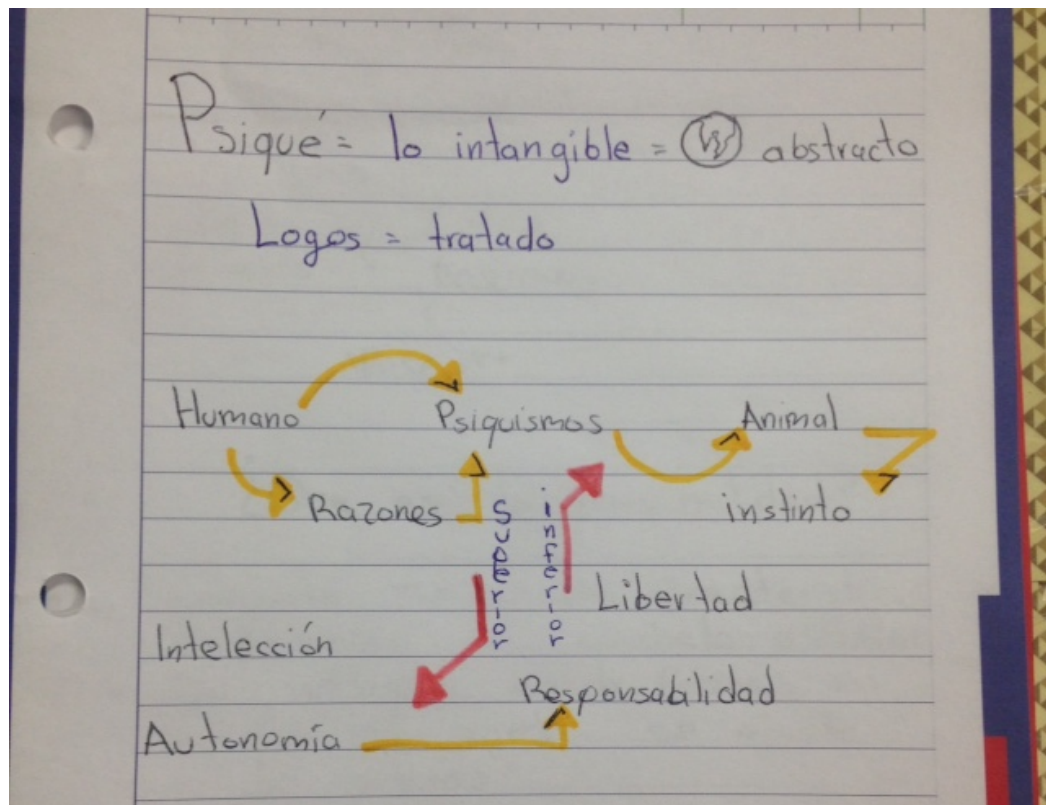 Psiqué = lo intangible = abstracto
Logos = tratado
Humano Psiquismos Animal
Razones Superior inferior instinto
Libertad
Intelección
Responsabilidad
Autonomía